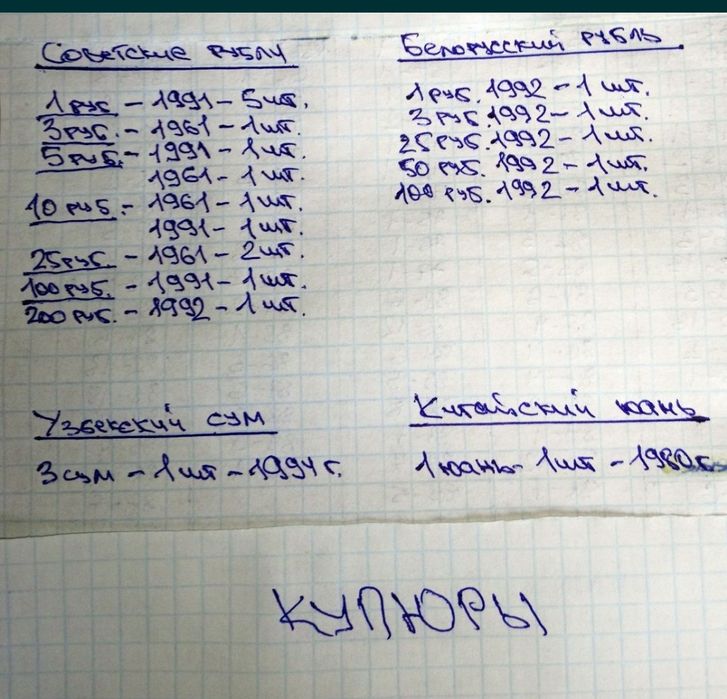 Советские рубли
1 руб. - 1991 - 5 шт.
3 руб. - 1961 - 1 шт.
5 руб. - 1991 - 1 шт.
1961 - 1 шт.
10 руб. - 1961 - 1 шт.
1991 - 1 шт.
25 руб. - 1961 - 2 шт.
100 руб. - 1991 - 1 шт.
200 руб. - 1992 - 1 шт.
Белорусский рубль
1 руб. 1992 - 1 шт.
3 руб. 1992 - 1 шт.
25 руб. 1992 - 1 шт.
50 руб. 1992 - 1 шт.
100 руб. 1992 - 1 шт.
Узбекский сум
3 сум - 1 шт - 1994 г.
Китайский юань
1 юань - 1 шт - 1980 г.
КУПЮРЫ